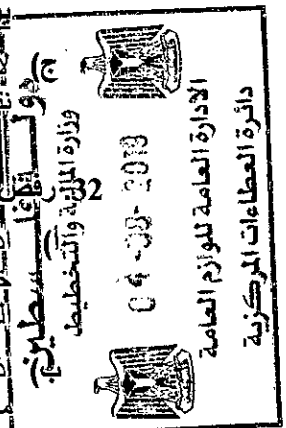 دولة فلسطين
2
وزارة المالية والتخطيط
الادارة العامة للوازم العامة
دائرة العطاءات المركزية